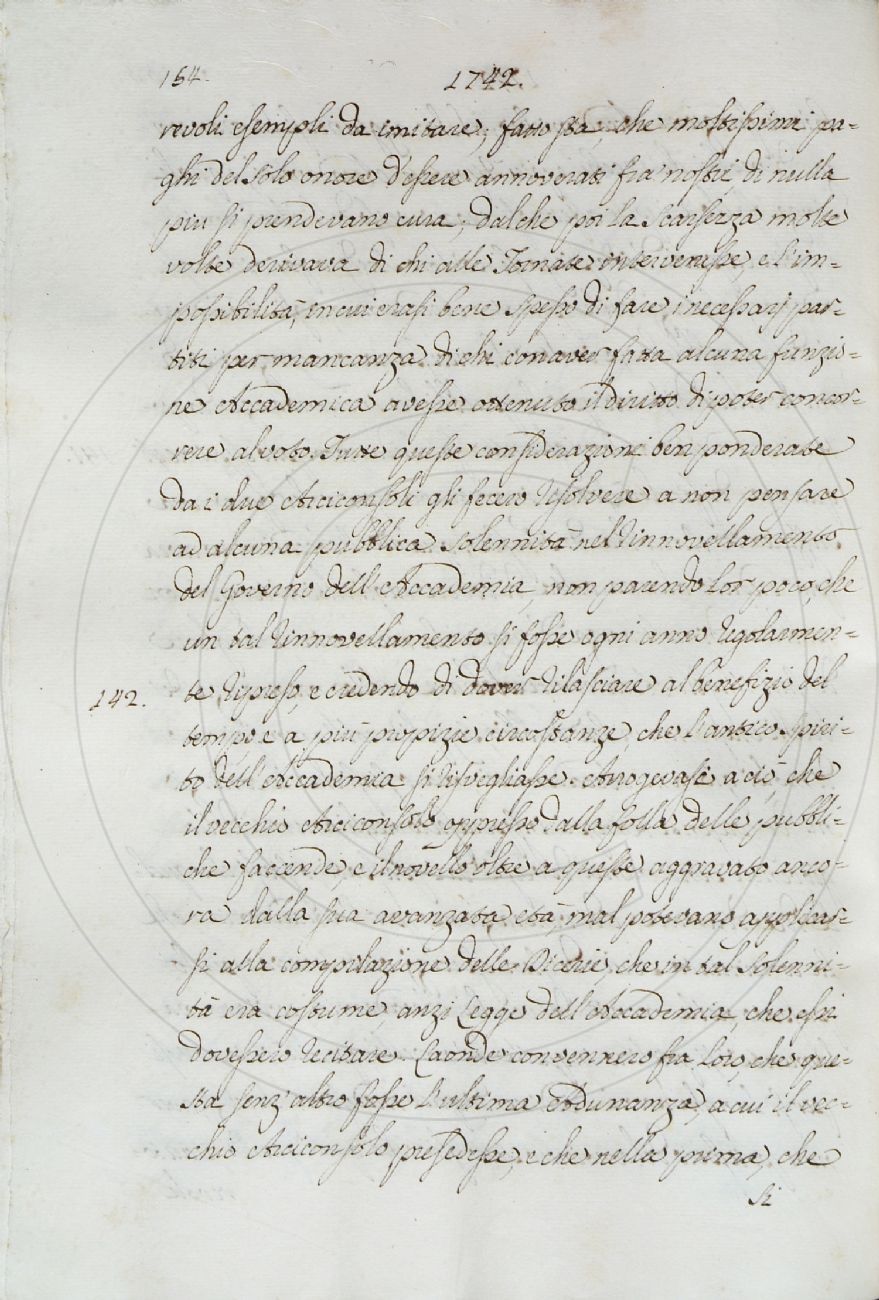 154.
1742.
revoli esempli da imitare, fatto sta, che moltissimi pa-
ghi del solo onore d'essere annoverati fra' nostri, di nulla
più si prendevano cura, dal che poi la scarsezza molte
volte derivava di chi alle Tornate intervenisse, e l'im-
possibilità, in cui erasi bene spesso di fare i necessarj par-
titi per mancanza di chi con aver fatta alcuna funzio-
ne Accademica avesse ottenuto il diritto di poter concor-
rere al voto. Tutte queste considerazioni ben ponderate
da i due Arciconsoli gli fecero risolvere a non pensare
ad alcuna pubblica solennità nel rinnovellamento
del Governo dell'Accademia, non parendo lor poco, che
un tal rinnovellamento si fosse ogni anno regolarmen-
142.
te ripreso, e credendo di dover rilasciare al benefizio del
tempo e a più propizie circostanze, che l'antico spiri-
to dell'Accademia si risvegliasse. Arrogevasi a ciò, che
il vecchio Arciconsolo oppresso dalla folla delle pubbli-
che faccende, e il novello oltre a queste aggravato anco-
ra dalla sua avanzata età, mal potevano applicar-
si alla compilazione delle Dicerie, che in tal solenni-
tà era costume, anzi Legge dell'Accademia, che essi
dovessero recitare. Laonde convennero fra loro, che que-
sta senz'altro fosse l'ultima Adunanza, a cui il vec-
chio Arciconsolo presedesse, e che nella prima, che
si